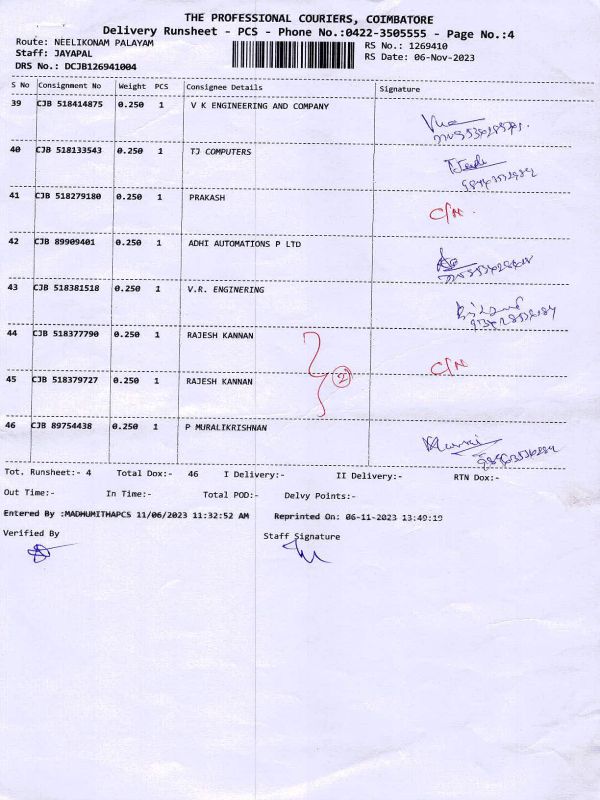 THE PROFESSIONAL COURIERS, COIMBATORE
Delivery Runsheet - PCS - Phone No.:0422-3505555 - Page No.:4
Route: NEELIKONAM PALAYAM RS No.: 1269410
Staff: JAYAPAL RS Date: 06-Nov-2023
DRS No.: DCJB126941004
S No Consignment No Weight PCS Consignee Details Signature
39 CJB 518414875 0.250 1 V K ENGINEERING AND COMPANY
40 CJB 518133543 0.250 1 TJ COMPUTERS
41 CJB 518279180 0.250 1 PRAKASH C/N
42 CJB 89909401 0.250 1 ADHI AUTOMATIONS P LTD
43 CJB 518381518 0.250 1 V.R. ENGINERING
44 CJB 518377790 0.250 1 RAJESH KANNAN C/N
2
45 CJB 518379727 0.250 1 RAJESH KANNAN
46 CJB 89754438 0.250 1 P MURALIKRISHNAN
Tot. Runsheet:- 4 Total Dox:- 46 I Delivery:- II Delivery:- RTN Dox:-
Out Time:- In Time:- Total POD:- Delvy Points:-
Entered By :MADHUMITHAPCS 11/06/2023 11:32:52 AM Reprinted On: 06-11-2023 13:49:19
Verified By Staff Signature